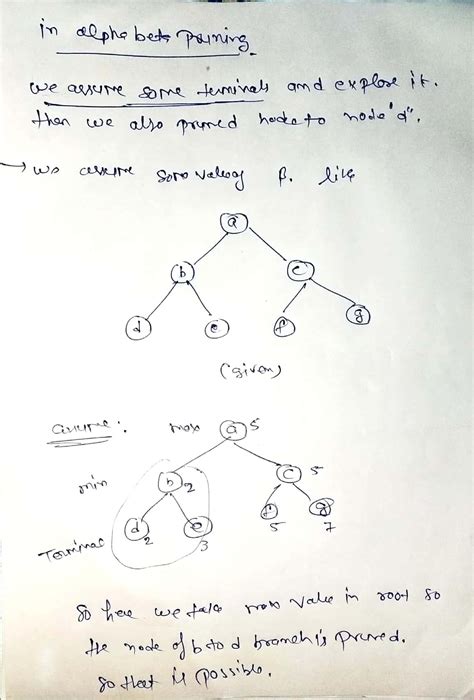 in alpha beta pruning.
we assume some terminals and explore it.
then we also pruned node to node "d".
→ we assume some value of β. like
a
b c
d e f g
(given)
assume: max a 5
min b 2 c 5
Terminal d 2 e 3 f 5 g 7
So here we take max value in root so
the node of b to d branch is pruned.
so that is possible.